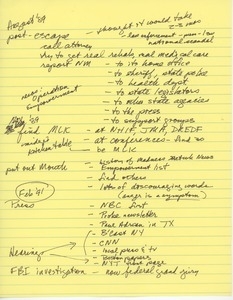 August '89
post-escape - thought it would take
2-3 mos
call attorney - law enforcement -
national scandal
try to get real rehab, real medical care
report NM - to its home office
- to sheriff, state police
- to health dept
- to state legislators
- to other state agencies
- to the press
- to support groups
'89
find MLK - at NHIF, TMA, DREDF
under - at conferences - find no
picnic table - be MLK
put out Mouth - System of Madness Network News
- Empowerment list
- find others
Feb '91 - lots of discouraging words
(anger is a symptom)
Press - NBC first
- Probe newsletter
- Paul Adrian in TX
- B'Cast NY
- CNN
Hearings - local press & tv
- Boston papers
- NYT front page
FBI investigation - now federal grand jury